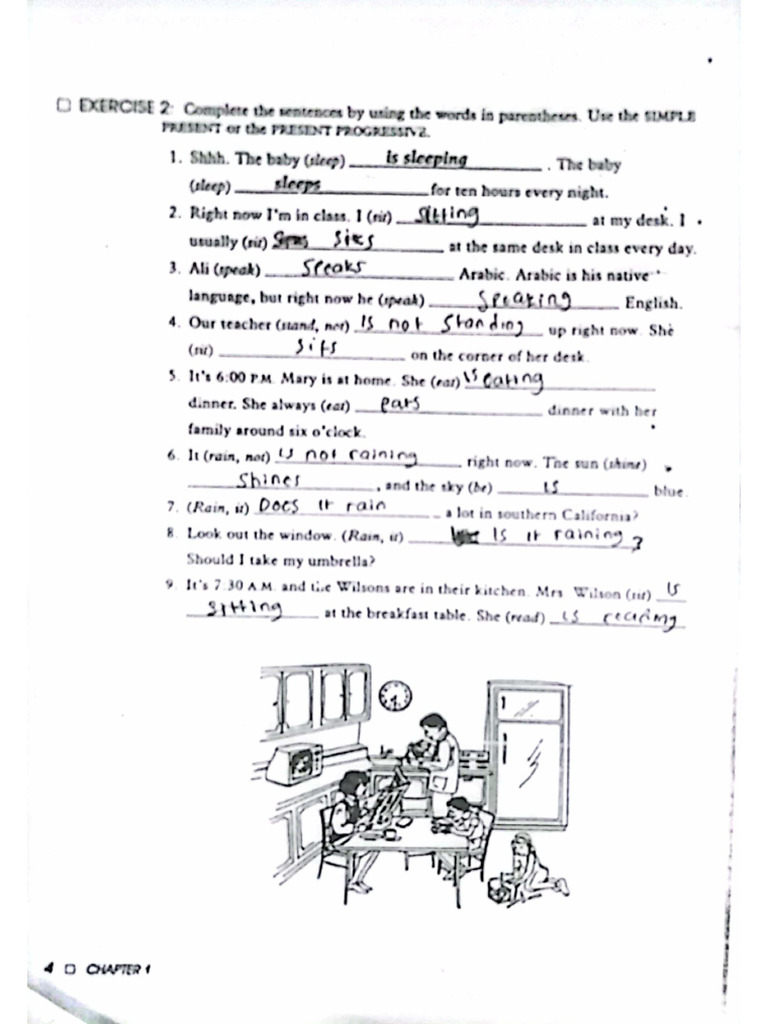 ☐ EXERCISE 2: Complete the sentences by using the words in parentheses. Use the SIMPLE
PRESENT or the PRESENT PROGRESSIVE.
1. Shhh. The baby (sleep) is sleeping. The baby
(sleep) sleeps for ten hours every night.
2. Right now I'm in class. I (sit) sitting at my desk. I
usually (sit) sits at the same desk in class every day.
3. Ali (speak) speaks Arabic. Arabic is his native
language, but right now he (speak) speaking English.
4. Our teacher (stand, not) is not standing up right now. She
(sit) sits on the corner of her desk.
5. It's 6:00 P.M. Mary is at home. She (eat) is eating
dinner. She always (eat) eats dinner with her
family around six o'clock.
6. It (rain, not) is not raining right now. The sun (shine)
shines, and the sky (be) is blue.
7. (Rain, it) Does it rain a lot in southern California?
8. Look out the window. (Rain, it) Is it raining?
Should I take my umbrella?
9. It's 7:30 A.M. and the Wilsons are in their kitchen. Mrs. Wilson (sit) is
sitting at the breakfast table. She (read) is reading
4 ☐ CHAPTER 1